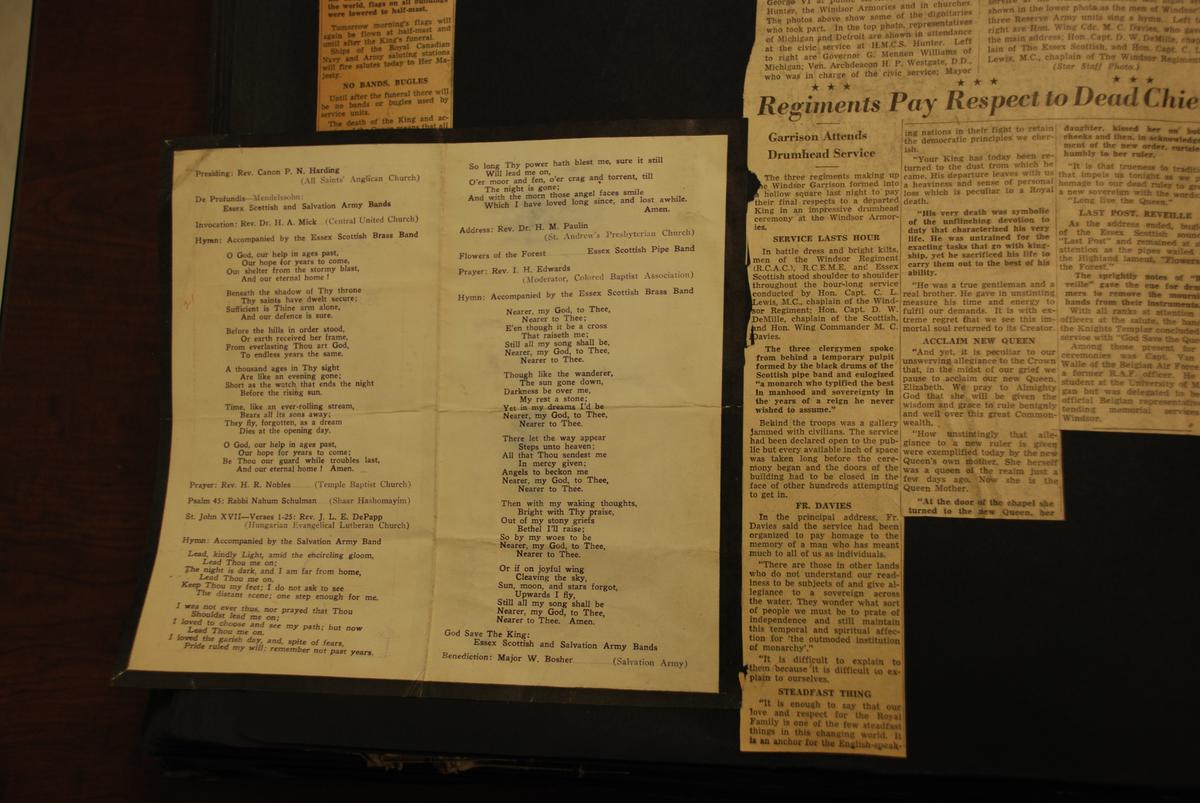 the world, flags on all buildings
were lowered to half-mast.
Tomorrow morning's flags will
again be flown at half-mast and
until after the King's funeral.
Ships of the Royal Canadian
Navy and Army saluting stations
will fire salutes today to Her Ma-
jesty.
NO BANDS, BUGLES
Until after the funeral there will
be no bands or bugles used by
service units.
The death of the King and ac-
Presiding: Rev. Canon P. N. Harding
(All Saints' Anglican Church)
De Profundis—Mendelssohn:
Essex Scottish and Salvation Army Bands
Invocation: Rev. Dr. H. A. Mick (Central United Church)
Hymn: Accompanied by the Essex Scottish Brass Band
O God, our help in ages past,
Our hope for years to come,
Our shelter from the stormy blast,
And our eternal home!
Beneath the shadow of Thy throne
Thy saints have dwelt secure;
Sufficient is Thine arm alone,
And our defence is sure.
Before the hills in order stood,
Or earth received her frame,
From everlasting Thou art God,
To endless years the same.
A thousand ages in Thy sight
Are like an evening gone;
Short as the watch that ends the night
Before the rising sun.
Time, like an ever-rolling stream,
Bears all its sons away;
They fly, forgotten, as a dream
Dies at the opening day.
O God, our help in ages past,
Our hope for years to come;
Be Thou our guard while troubles last,
And our eternal home! Amen.
Prayer: Rev. H. R. Nobles (Temple Baptist Church)
Psalm 45: Rabbi Nahum Schulman (Shaar Hashomayim)
St. John XVII—Verses 1-25: Rev. J. L. E. DePapp
(Hungarian Evangelical Lutheran Church)
Hymn: Accompanied by the Salvation Army Band
Lead, kindly Light, amid the encircling gloom,
Lead Thou me on;
The night is dark, and I am far from home,
Lead Thou me on.
Keep Thou my feet; I do not ask to see
The distant scene; one step enough for me.
I was not ever thus, nor prayed that Thou
Shouldst lead me on;
I loved to choose and see my path; but now
Lead Thou me on.
I loved the garish day, and, spite of fears,
Pride ruled my will: remember not past years.
So long Thy power hath blest me, sure it still
Will lead me on,
O'er moor and fen, o'er crag and torrent, till
The night is gone;
And with the morn those angel faces smile
Which I have loved long since, and lost awhile.
Amen.
Address: Rev. Dr. H. M. Paulin
(St. Andrew's Presbyterian Church)
Flowers of the Forest Essex Scottish Pipe Band
Prayer: Rev. I. H. Edwards
(Moderator, Colored Baptist Association)
Hymn: Accompanied by the Essex Scottish Brass Band
Nearer, my God, to Thee,
Nearer to Thee;
E'en though it be a cross
That raiseth me;
Still all my song shall be,
Nearer, my God, to Thee,
Nearer to Thee.
Though like the wanderer,
The sun gone down,
Darkness be over me,
My rest a stone;
Yet in my dreams I'd be
Nearer, my God, to Thee,
Nearer to Thee.
There let the way appear
Steps unto heaven;
All that Thou sendest me
In mercy given;
Angels to beckon me
Nearer, my God, to Thee,
Nearer to Thee.
Then with my waking thoughts,
Bright with Thy praise,
Out of my stony griefs
Bethel I'll raise;
So by my woes to be
Nearer, my God, to Thee,
Nearer to Thee.
Or if on joyful wing
Cleaving the sky,
Sun, moon, and stars forgot,
Upwards I fly,
Still all my song shall be
Nearer, my God, to Thee,
Nearer to Thee. Amen.
God Save The King:
Essex Scottish and Salvation Army Bands
Benediction: Major W. Bosher (Salvation Army)
Hunter, the Windsor Armories and in churches.
The photos above show some of the dignitaries
who took part. In the top photo, representatives
of Michigan and Detroit are shown in attendance
at the civic service at H.M.C.S. Hunter. Left
to right are Governor G. Mennen Williams of
Michigan; Ven. Archdeacon H. P. Westgate, D.D.,
who was in charge of the civic service; Mayor
shown in the lower photo as the men of Windsor
three Reserve Army units sing a hymn. Left
right are Hon. Wing Cdr. M. C. Davies, who gave
the main address; Hon. Capt. D. W. DeMille, chap-
lain of The Essex Scottish, and Hon. Capt. C. L.
Lewis, M.C., chaplain of The Windsor Regiment
(Star Staff Photo.)
Regiments Pay Respect to Dead Chie
Garrison Attends
Drumhead Service
The three regiments making up
the Windsor Garrison formed into
a hollow square last night to pay
their final respects to a departed
King in an impressive drumhead
ceremony at the Windsor Armor-
ies.
SERVICE LASTS HOUR
In battle dress and bright kilts,
men of the Windsor Regiment
(R.C.A.C.), R.C.E.M.E, and Essex
Scottish stood shoulder to shoulder
throughout the hour-long service
conducted by Hon. Capt. C. L.
Lewis, M.C., chaplain of the Wind-
sor Regiment; Hon. Capt. D. W.
DeMille, chaplain of the Scottish,
and Hon. Wing Commander M. C.
Davies.
The three clergymen spoke
from behind a temporary pulpit
formed by the black drums of the
Scottish pipe band and eulogized
"a monarch who typified the best
in manhood and sovereignty in
the years of a reign he never
wished to assume."
Behind the troops was a gallery
jammed with civilians. The service
had been declared open to the pub-
lic but every available inch of space
was taken long before the cere-
mony began and the doors of the
building had to be closed in the
face of other hundreds attempting
to get in.
FR. DAVIES
In the principal address, Fr.
Davies said the service had been
organized to pay homage to the
memory of a man who has meant
much to all of us as individuals.
"There are those in other lands
who do not understand our read-
iness to be subjects of and give al-
legiance to a sovereign across
the water. They wonder what sort
of people we must be to prate of
independence and still maintain
this temporal and spiritual affec-
tion for 'the outmoded institution
of monarchy'."
"It is difficult to explain to
them because it is difficult to ex-
plain to ourselves.
STEADFAST THING
"It is enough to say that our
love and respect for the Royal
Family is one of the few steadfast
things in this changing world. It
is an anchor for the English-speak-
ing nations in their fight to retain
the democratic principles we cher-
ish.
"Your King has today been re-
turned to the dust from which he
came. His departure leaves with us
a heaviness and sense of personal
loss which is peculiar to a Royal
death.
"His very death was symbolic
of the unflinching devotion to
duty that characterized his very
life. He was untrained for the
exacting tasks that go with king-
ship, yet he sacrificed his life to
carry them out to the best of his
ability.
"He was a true gentleman and a
real brother. He gave in unstinting
measure his time and energy to
fulfil our demands. It is with ex-
treme regret that we see this im-
mortal soul returned to its Creator.
ACCLAIM NEW QUEEN
"And yet, it is peculiar to our
unswerving allegiance to the Crown
that, in the midst of our grief we
pause to acclaim our new Queen,
Elizabeth. We pray to Almighty
God that she will be given the
wisdom and grace to rule benignly
and well over this great Common-
wealth.
"How unstintingly that alle-
giance to a new ruler is given
were exemplified today by the new
Queen's own mother. She herself
was a queen of the realm just a
few days ago. Now she is the
Queen Mother.
"At the door of the chapel she
turned to the new Queen, her
daughter, kissed her on both
cheeks and then, in acknowledg-
ment of the new order, curtsied
humbly to her ruler.
"It is that trueness to tradition
that impels us tonight as we pay
homage to our dead ruler to greet
a new sovereign with the words
"Long live the Queen."
LAST POST, REVEILLE
As the address ended, buglers
of the Essex Scottish sounded
"Last Post" and remained at
attention as the pipes wailed
the Highland lament, "Flowers of
the Forest."
The sprightly notes of "Re-
veille" gave the cue for drum-
mers to remove the mourning
bands from their instruments.
With all ranks at attention
officers at the salute, the band
the Knights Templar concluded
service with "God Save the Queen
Among those present for
ceremonies was Capt. Van
Walle of the Belgian Air Force
a former R.A.F. officer. He
student at the University of Michi-
gan but was delegated to be
official Belgian representative
tending memorial services
Windsor.